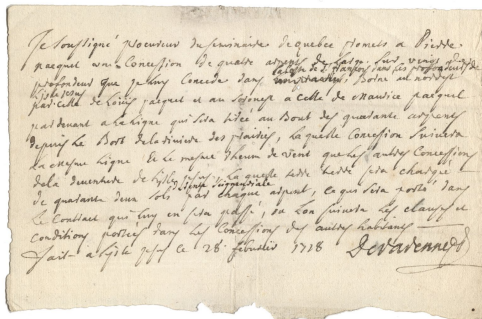 Je soussigné procureur du seminaire de quebec promets a Pierre
paequet une Concession de quatre arpents de Large sur vingt de
profondeur que je luy Concede dans borne au nordest
par celle de Louis paequet et au sorouest a celle de maurice paequet
par devant a La Ligne qui sera tirée au Bout des quarante arpents
depuis Le Bort de la riviere des prairies, laquelle Concession suivera
La mesme Ligne Et Le mesme Rheum de vent que Les autres Concessions
de la devanture de jesus, Laquelle terre sera chargée
de rente seigneuriale
de quarante deux sols par chaque arpent, ce qui sera porté dans
Le Contract qui luy en sera passé, ou Lon suivera Les clauses et
conditions portées dans Les Concessions des autres habitans
fait a jesus ce 28 febvrier 1718